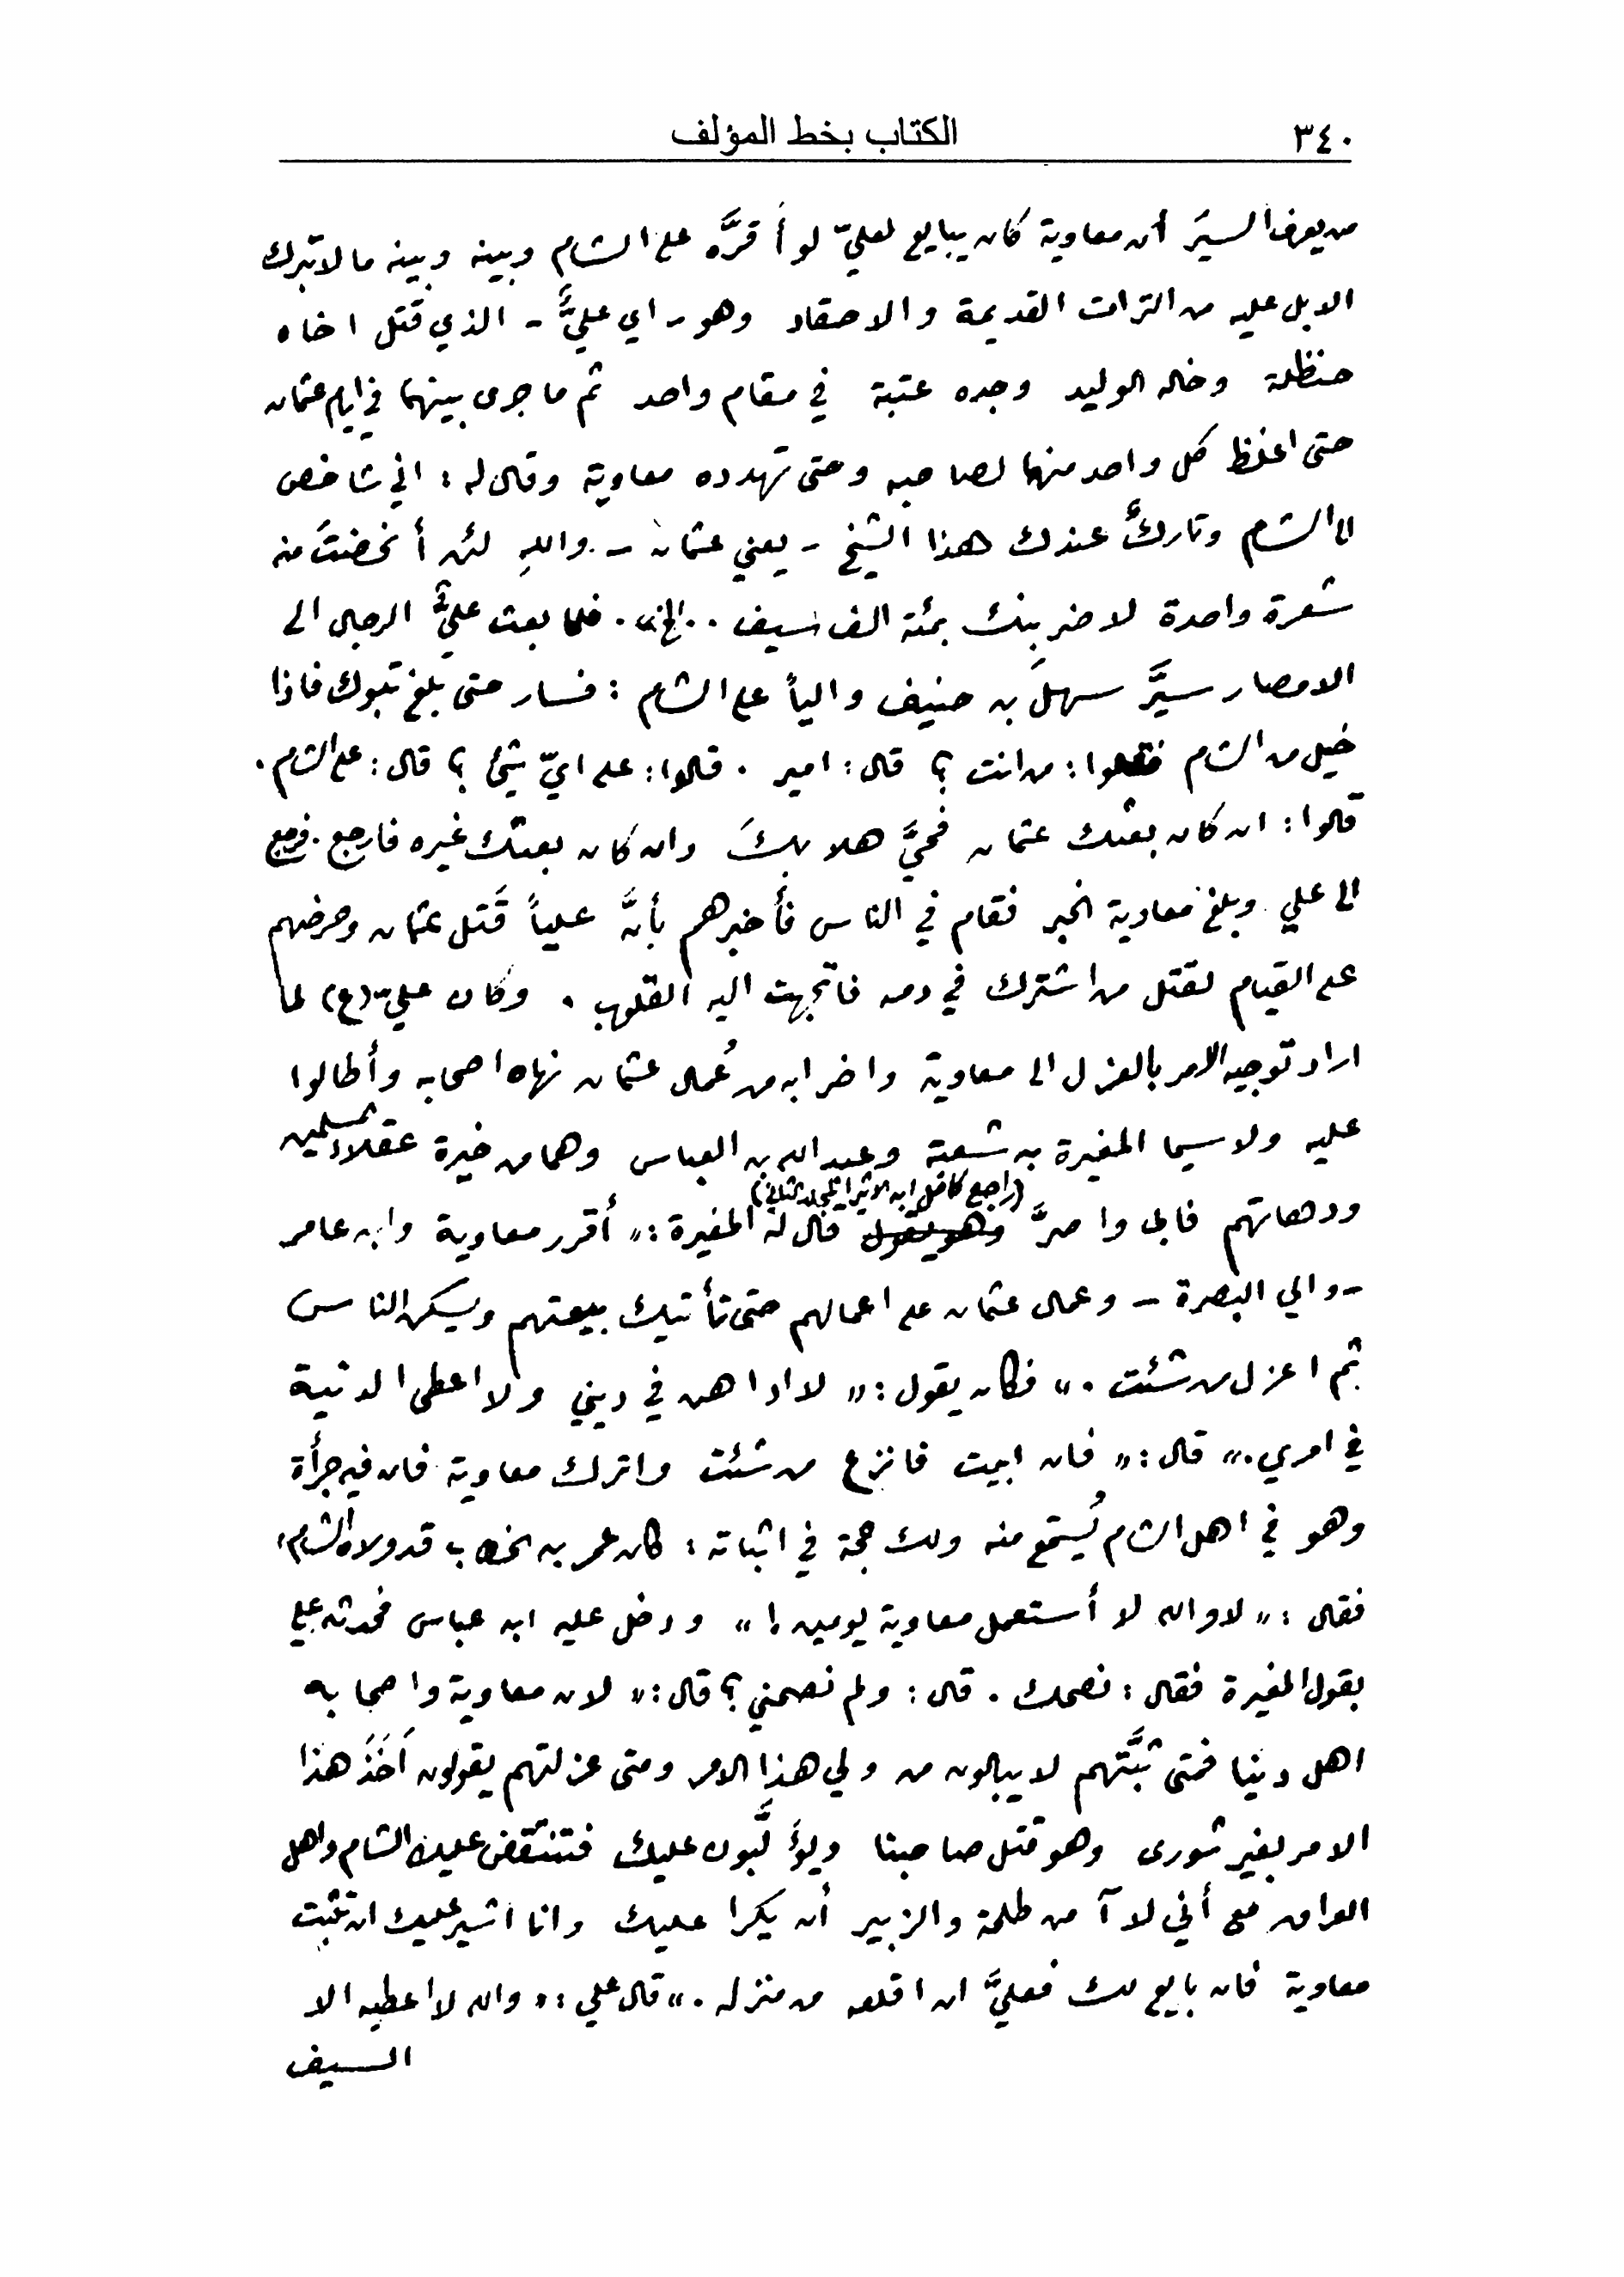 ٣٤٠
الكتاب بخط المؤلف
من يعرف السيَر أن معاوية كان يبايع لعليّ لو أَقرَّه على الشام وبينه وبينه ما لا تبرك
الابل عليه من الترات القديمة والاحقاد وهو ـ اي عليٌّ ـ الذي قتل اخاه
حنظلة وخاله الوليد وجده عتبة في مقام واحد ثم ما جرى بينهما في ايام عثمان
حتى اغلظ كل واحد منهما لصاحبه وحتى تهدده معاوية وقال له : اني شاخص
الى الشام وتاركٌ عندك هذا الشيخ ـ يعني عثمان ـ . والله لئن أنحضتَ منه
شعرة واحدة لاضربنك بمئة الف سيف . . الخ » . فلما بعث عليٌّ الرجال الى
الامصار سيَّر سهلَ بن حنيف والياً على الشام : فسار حتى بلغ تبوك فاذا
خيل من الشام فقالوا : من انت ؟ قال : امير . قالوا : على ايّ شيء ؟ قال : على الشام .
قالوا : ان كان بعثك عثمان فحيَّ هلا بكَ وان كان بعثك غيره فارجع . فرجع
الى علي . وبلغ معاوية الخبر فقام في الناس فأخبرهم بأنَّ علياً قَتل عثمان وحرضهم
على القيام لقتل من اشترك في دمه فاتجهت اليه القلوب . وكان عليّ (ع) لما
اراد توجيه الامر بالعزل الى معاوية واضرابه من عُمال عثمان نهاه اصحابه وأطالوا
عليه ولا سيما المغيرة بن شعبة وعبد الله بن العباس وهما من خيرة عقلاء المسلمين
(راجع كامل ابن الاثير المجلد الثاني)
ودهاتهم فابى واصرَّ وهو يقول قال له المغيرة : « أقرر معاوية وابن عامر
ـ والي البصرة ـ وعمال عثمان على اعمالهم حتى تأتيك بيعتهم ويسكن الناس
ثم اعزل من شئت . » فكان يقول : « لا اداهن في ديني ولا اعطي الدنية
في امري . » قال : « فان ابيت فانزع من شئت واترك معاوية فان فيه جرأة
وهو في اهل الشام يُستمع منه ولك حجة في اثباته : كان عمر بن الخطاب قد ولاه الشام »
فقال : « لا والله لا أستعمل معاوية يومين ! » ودخل عليه ابن عباس فحدثه علي
بقول المغيرة فقال : نصحك . قال : ولم نصحني ؟ قال : « لان معاوية واصحابه
اهل دنيا فمتى ثبَّتَّهم لا يبالون من ولي هذا الامر ومتى عزلتهم يقولون أَخَذَ هذا
الامر بغير شورى وهو قتل صاحبنا ويؤَلَّبون عليك فتنتقض عليك الشام واهل
العراق مع أني لا آ من طلحة والزبير أن يكرا عليك وانا اشير عليك ان تثبت
معاوية فان بايع لك فعليَّ ان اقلعه من منزله . » قال علي : « والله لا اعطيه الا
السيف